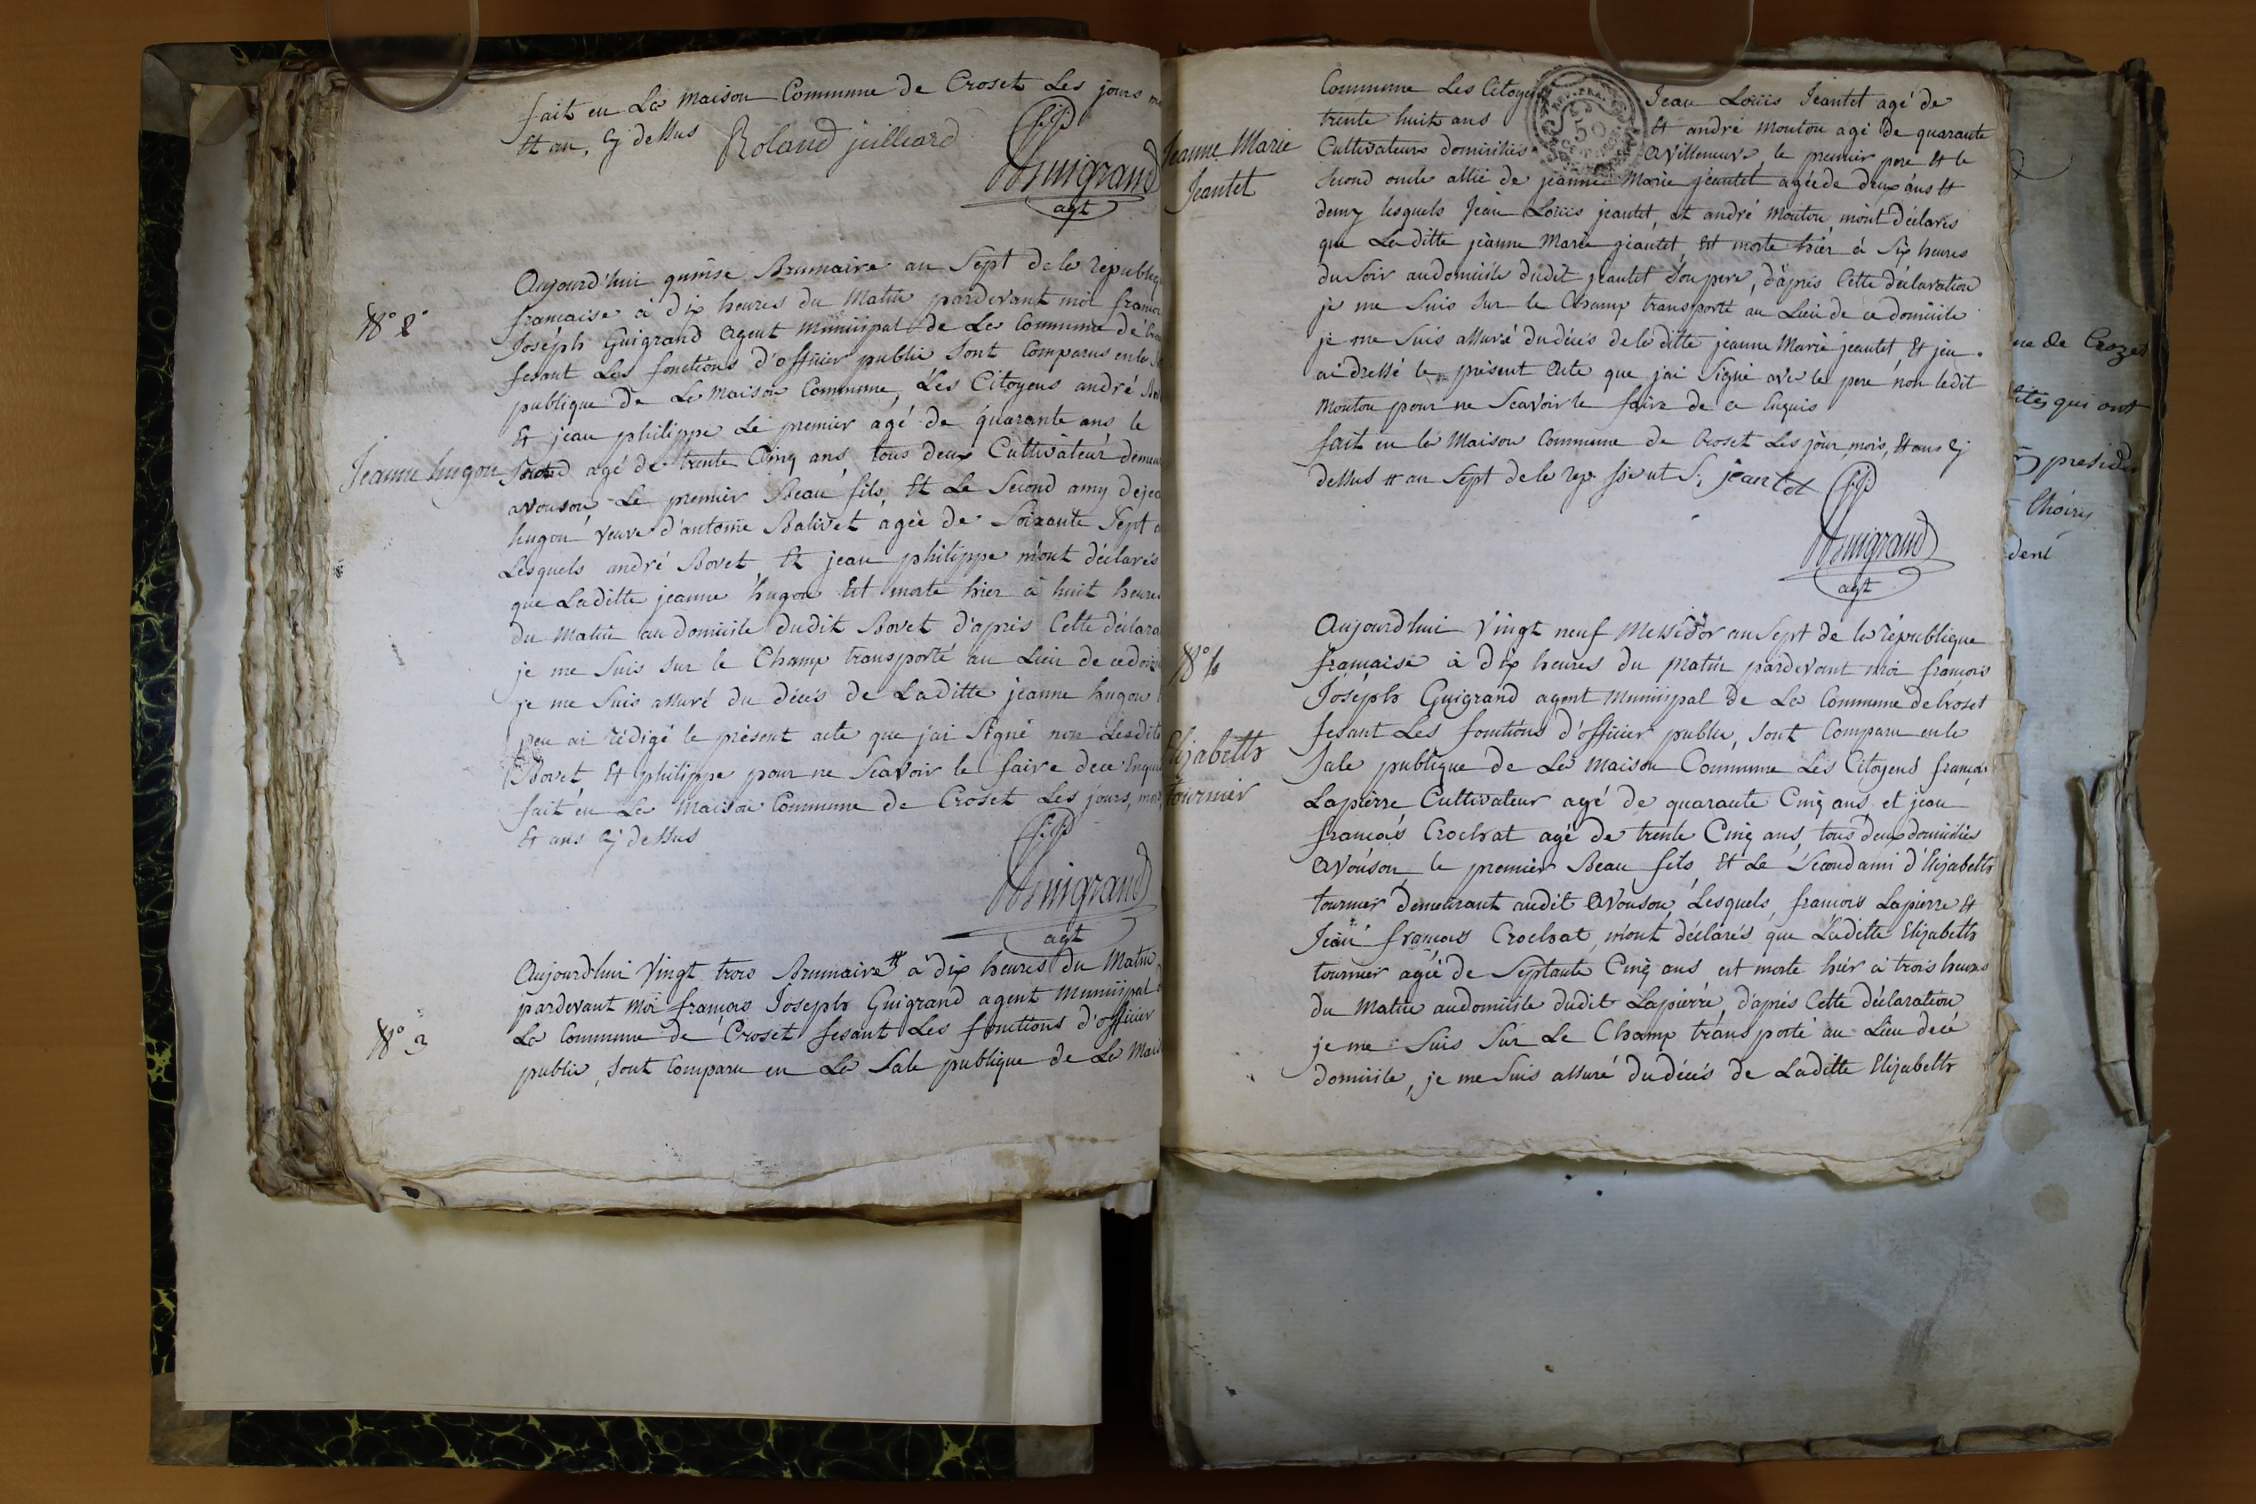 fait en La Maison Commune de Croset Les jours
Et an, Cj dessus Roland julliard
Guigrand
agt
N° 2
Aujourd'hui quinse Brumaire an Sept de la republiq
francaise à dix heures du Matin pardevant moi francoi
Joseph Guigrand Agent Municipal de La Commune de
fesant Les fonctions d'officier public Sont Comparus en la
publique de La Maison Commune, Les Citoyens andré
Et jean philippe Le premier agé de quarante ans le
Jeanne hugon
second agé de trente Cinq ans, tous deux Cultivateur demeur
avouson Le premier Beau fils, Et Le Second amy de jea
hugon veuve d'antoine Balivet agée de Soixante Sept
Lesquels andré Bovet Et jean philippe m'ont déclarés
que Laditte jeanne hugon Est morte hier à huit heures
du Matin au domicile dudit Bovet d'après Cette déclara
je me Suis sur le Champ transporté au Lieu de ce domi
je me Suis assuré du décés de Laditte jeanne hugon
jen ai rédigé le présent acte que j'ai Signé non Lesdits
Bovet Et philippe pour ne Scavoir le faire de ce Enquis
fait en La Maison Commune de Croset Les jours, mois
Et ans Cj dessus
Guigrand
agt
Aujourdhui Vingt trois Brumaire à dix heures du Matin
pardevant Moi francois Joseph Guigrand agent Municipal
N° 3
La Commune de Croset fesant Les fonctions d'officier
public, sont Comparu en La Sale publique de La Mais
Commune Les Citoyens Jean Loüis Jeantet agé de
trente huit ans Et andré Mouton agé de quarante
Jeanne Marie
Jeantet
Cultivateurs domiciliés a Villeneuve, le premier pere Et le
Second oncle allié de jeanne Marie jeantet agée de deux ans Et
demy lesquels Jean Loüis jeantet, et andré Mouton m'ont déclarés
que La ditte jeanne Marie giantet Est morte hier à Six heures
du Soir au domicile dudit jeantet Son pere, d'après Cette déclaration
je me Suis sur le Champ transporté au Lieu de ce domicile
je me Suis assuré du décés de la ditte jeanne Marie jeantet, Et jen
ai dressé le présent Acte que j'ai Signé avec le pere non ledit
Mouton pour ne Scavoir le faire de ce Enquis
fait en la Maison Commune de Croset Les jour, mois, Et ans Cj
dessus # an Sept de la rep. jeantet
Guigrand
agt
N° 4
Aujourdhui Vingt neuf Messidor an Sept de la république
francaise à dix heures du Matin pardevant Moi francois
Joséph Guigrand agent Municipal de La Commune de Croset
fesant Les fonctions d'officier public, sont Comparu en la
Elizabeth
tournier
Sale publique de La Maison Commune Les Citoyens françois
Lapierre Cultivateur agé de quarante Cinq ans, et jean
francois Crochat agé de trente Cinq ans, tous deux domiciliés
Avouson, le premier Beau fils, Et Le Second ami d'Elizabeth
tournier demeurant audit Avouson, Lesquels, francois Lapierre Et
Jean françois Crochat, m'ont déclarés que Laditte Elizabeth
tournier agée de Septante Cinq ans est morte hier à trois heures
du Matin au domicile dudit Lapierre, d'après Cette déclaration
je me Suis Sur Le Champ transporté au Lieu de ce
domicile, je me Suis assuré du décés de Laditte Elizabeth
de Crozet
qui ont
presid